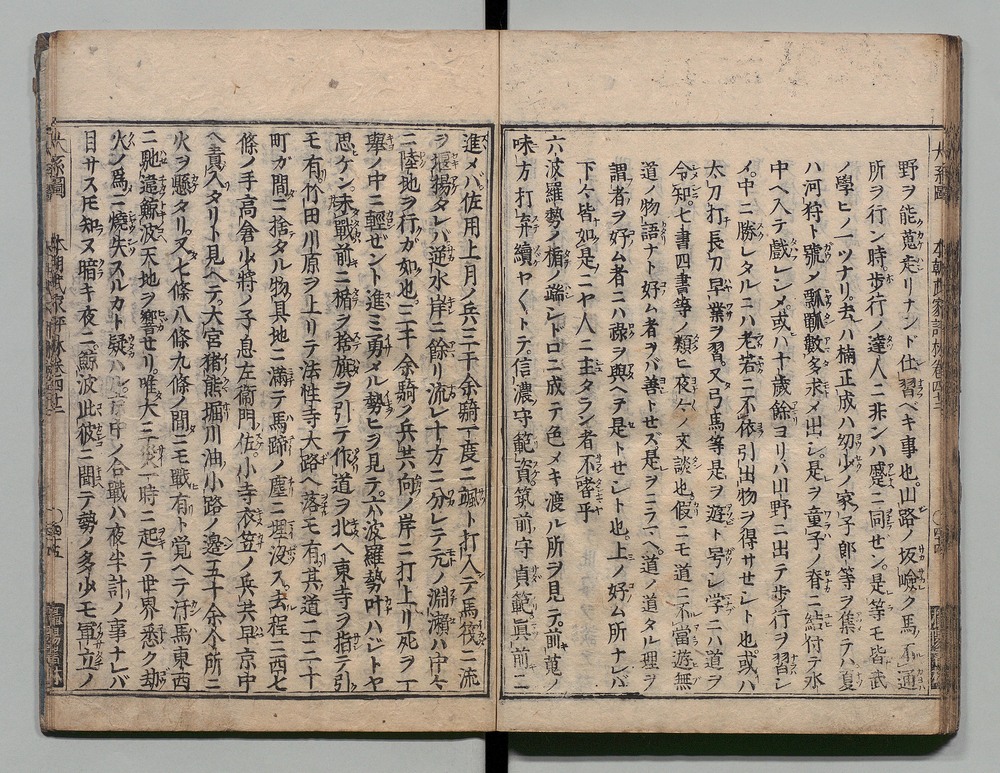 大系圖 本朝武家評林卷四十二
野ヲ能蒐走リナンド仕習ベキ事也山路ノ坂嶮ク馬不通
所ヲ行ン時歩行ノ達人ニ非ンハ蹇ニ同セン是等モ皆武
ノ學ヒノ一ツナリ去ハ楠正成ハ幼少ノ家子郎等ヲ集テハ夏
ハ河狩ト號メ瓢數多求メ出シ是ヲ童子ノ脊ニ結付テ水
中ヘ入テ戲レシメ或ハ十歳餘ヨリハ山野ニ出テ歩行ヲ習シ
メ中ニ勝レタルニハ老若ニ不依引出物ヲ得サセシト也或ハ
太刀打長刀早業ヲ習又弓馬等是ヲ遊ト号シ学ニハ道ヲ
令知七書四書等ノ類ヒ夜々ノ文談也假ニモ道ニ不當遊無
道ノ物語ナト好ム者ヲバ善トセズ是ヲニラミ道ノ道タル理ヲ
謂者ヲ好ム者ニハ祿ヲ與ヘテ是トセシト也上ノ好ム所ナレバ
下々皆如是ニヤ人ニ主タラン者不嗜乎
六波羅勢ノ楯ノ端シトロニ成テ色メキ渡ル所ヲ見テ前蒐ノ
味方打弃續ヤくトテ信濃守範資筑前守貞範眞前ニ
進メバ佐用上月ノ兵三千余騎一度ニ颯ト打入テ馬筏ニ流
ヲ堰揚タレバ逆水岸ニ餘リ流レ十方ニ分レテ元ノ淵瀬ハ中々
ニ陸地ヲ行ガ如也三千余騎ノ兵共向ノ岸ニ打上リ死ヲ一
擧ノ中ニ輕ゼント進ミ勇メル勢ヒヲ見テ六波羅勢叶ハジトヤ
思ケン未戰前ニ楯ヲ捨旗ヲ引テ作道ヲ北ヘ東寺ヲ指テ引
モ有竹田川原ヲ上リテ法性寺大路ヘ落モ有其道二三十
町ガ間ニ捨タル物具地ニ滿テ馬蹄ノ塵ニ埋没ス去程ニ西七
條ノ手高倉少將ノ子息左衛門佐小寺衣笠ノ兵共早京中
ヘ責入タリト見ヘテ大宮猪熊堀川油小路ノ邊五十余ケ所ニ
火ヲ懸タリ又七條八條九條ノ間ニモ戰有ト覚ヘテ汗馬東西
ニ馳違鯨波天地ヲ響セリ唯大三災一時ニ起テ世界悉ク劫
火ノ爲ニ燒失スルカト疑ハ ノ合戰ハ夜半計ノ事ナレバ
目サスモ知ヌ暗キ夜ニ鯨波此彼ニ聞テ勢ノ多少モ軍立ノ
大系圖 本朝武家評林卷四十二